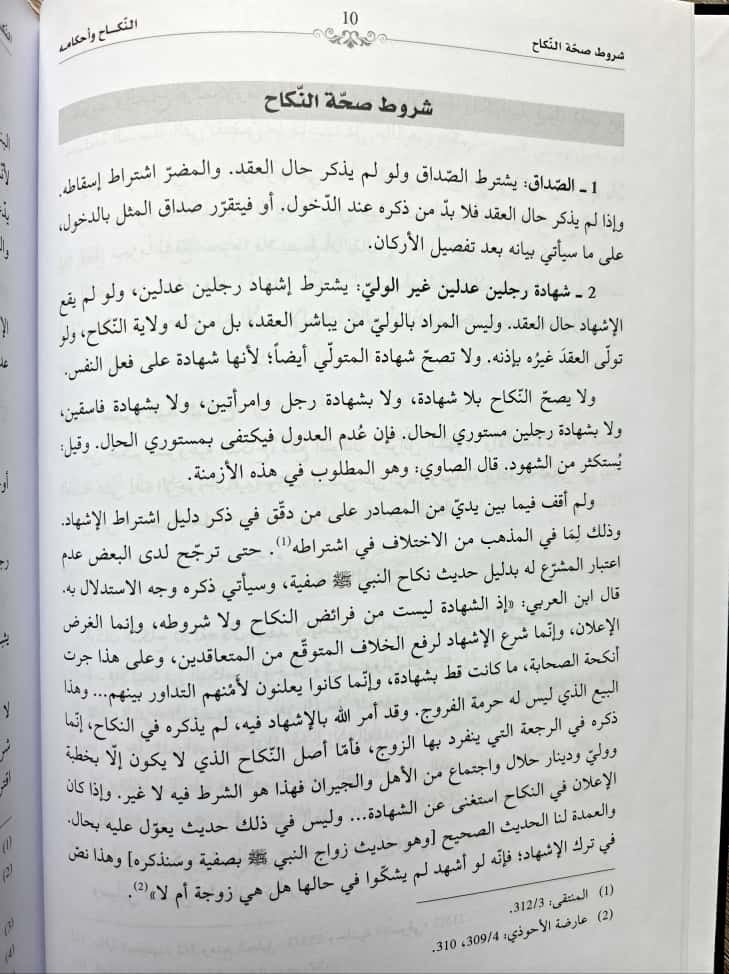 النّكاح وأحكامه
10
شروط صحّة النّكاح
شروط صحّة النّكاح
1 ـ الصّداق: يشترط الصّداق ولو لم يذكر حال العقد. والمضرّ اشتراط إسقاطه.
وإذا لم يذكر حال العقد فلا بدّ من ذكره عند الدّخول. أو فيتقرّر صداق المثل بالدخول،
على ما سيأتي بيانه بعد تفصيل الأركان.
2 ـ شهادة رجلين عدلين غير الوليّ: يشترط إشهاد رجلين عدلين، ولو لم يقع
الإشهاد حال العقد. وليس المراد بالوليّ من يباشر العقد، بل من له ولاية النّكاح، ولو
تولّى العقدَ غيرُه بإذنه. ولا تصحّ شهادة المتولّي أيضاً؛ لأنها شهادة على فعل النفس.
ولا يصحّ النّكاح بلا شهادة، ولا بشهادة رجل وامرأتين، ولا بشهادة فاسقين،
ولا بشهادة رجلين مستوري الحال. فإن عُدم العدول فيكتفى بمستوري الحال. وقيل:
يُستكثر من الشهود. قال الصاوي: وهو المطلوب في هذه الأزمنة.
ولم أقف فيما بين يديّ من المصادر على من دقّق في ذكر دليل اشتراط الإشهاد.
وذلك لِمَا في المذهب من الاختلاف في اشتراطه(1). حتى ترجّح لدى البعض عدم
اعتبار المشرّع له بدليل حديث نكاح النبي ﷺ صفية، وسيأتي ذكره وجه الاستدلال به.
قال ابن العربي: «إذ الشهادة ليست من فرائض النكاح ولا شروطه، وإنما الغرض
الإعلان، وإنّما شرع الإشهاد لرفع الخلاف المتوقّع من المتعاقدين، وعلى هذا جرت
أنكحة الصحابة، ما كانت قط بشهادة، وإنّما كانوا يعلنون لأمْنهم التداور بينهم... وهذا
البيع الذي ليس له حرمة الفروج. وقد أمر الله بالإشهاد فيه، لم يذكره في النكاح، إنّما
ذكره في الرجعة التي ينفرد بها الزوج، فأمّا أصل النّكاح الذي لا يكون إلّا بخطبة
ووليّ ودينار حلال واجتماع من الأهل والجيران فهذا هو الشرط فيه لا غير. وإذا كان
الإعلان في النكاح استغنى عن الشهادة... وليس في ذلك حديث يعوّل عليه بحال.
والعمدة لنا الحديث الصحيح [وهو حديث زواج النبي ﷺ بصفية وسنذكره] وهذا نص
في ترك الإشهاد؛ فإنّه لو أشهد لم يشكّوا في حالها هل هي زوجة أم لا»(2).
(1) المنتقى: 312/3.
(2) عارضة الأحوذي: 309/4، 310.